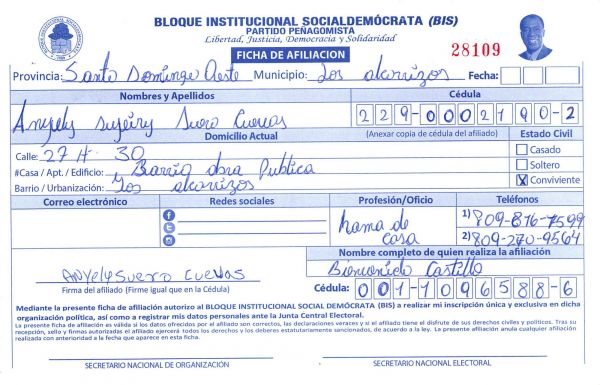 BLOQUE INSTITUCIONAL SOCIALDEMÓCRATA (BIS)
PARTIDO PEÑAGOMISTA
Libertad, Justicia, Democracia y Solidaridad
FICHA DE AFILIACION
28109
Provincia: Santo Domingo Oeste Municipio: Los alcarrizos Fecha:
Nombres y Apellidos
Cédula
Anyely sujeiry Suero Cuevas
229-0002190-2
Domicilio Actual
(Anexar copia de cédula del afiliado)
Estado Civil
Calle: 27 # 30
Casado
#Casa / Apt. / Edificio: Barrio obra Publica
Soltero
Barrio / Urbanización: Los alcarrizos
X Conviviente
Correo electrónico
Redes sociales
Profesión/Oficio
Teléfonos
hama de casa
1) 809-876-7599
2) 809-270-9564
Nombre completo de quien realiza la afiliación
Bienvenido Castillo
ANyely Suero Cuevas
Firma del afiliado (Firme igual que en la Cédula)
Cédula: 001-1096588-6
Mediante la presente ficha de afiliación autorizo al BLOQUE INSTITUCIONAL SOCIAL DEMÓCRATA (BIS) a realizar mi inscripción única y exclusiva en dicha
organización política, así como a registrar mis datos personales ante la Junta Central Electoral.
La presente ficha de afiliación es válida si los datos ofrecidos por el afiliado son correctos, las declaraciones veraces y si el afiliado tiene el disfrute de sus derechos civiles y políticos. Tras su
recepción, sello y firmas autorizadas el afiliado ejercerá todos los derechos y los deberes estatutariamente sancionados, de acuerdo a la ley. La presente afiliación anula cualquier afiliación
realizada con anterioridad a la fecha que aparece en esta ficha.
SECRETARIO NACIONAL DE ORGANIZACIÓN
SECRETARIO NACIONAL ELECTORAL